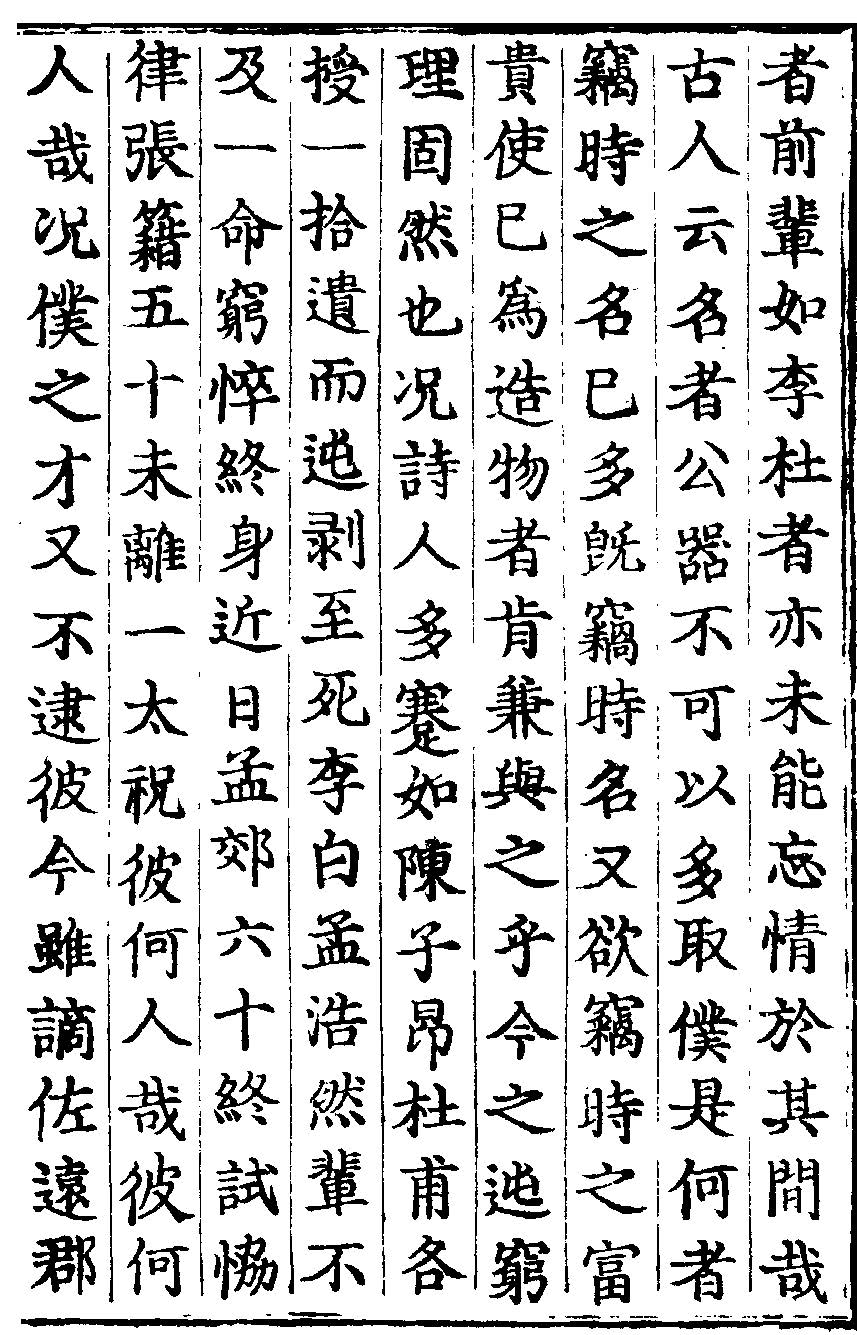 者前輩如李杜者亦未能忘情於其間哉
古人云名者公器不可以多取僕是何者
竊時之名已多旣竊時名又欲竊時之富
貴使已爲造物者肯兼與之乎今之迍窮
理固然也况詩人多蹇如陳子昂杜甫各
授一拾遺而迍剥至死李白孟浩然輩不
及一命窮悴終身近日孟郊六十終試恊
律張籍五十未離一太祝彼何人哉彼何
人哉况僕之才又不逮彼今雖謫佐遠郡